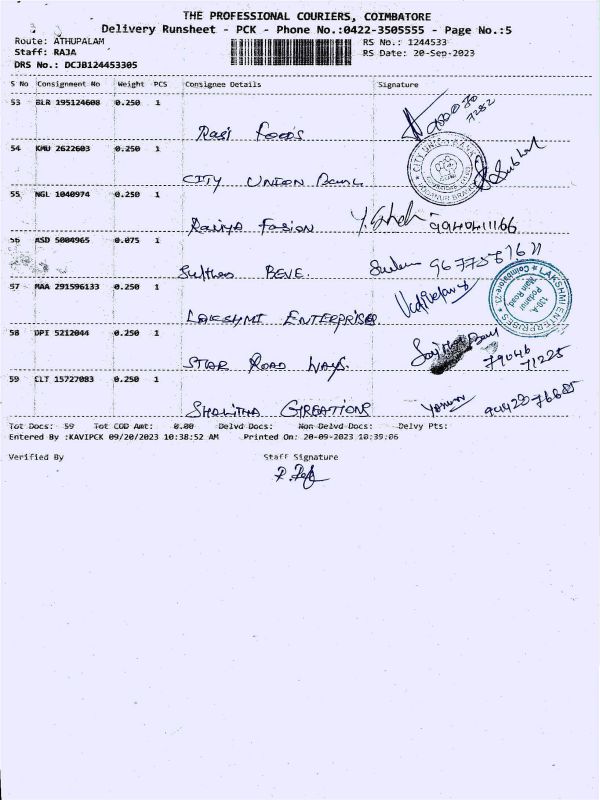 THE PROFESSIONAL COURIERS, COIMBATORE
Delivery Runsheet - PCK - Phone No.:0422-3505555 - Page No.:5
Route: ATHUPALAM
RS No.: 1244533
Staff: RAJA
RS Date: 20-Sep-2023
DRS No.: DCJB124453305
S No Consignment No Weight PCS Consignee Details Signature
53 BLR 195124608 0.250 1
Rasi Foods
54 KMU 2622603 0.250 1
CITY UNION Bank
55 NGL 1040974 0.250 1
Raniya Fasion
9940411166
56 ASD 5004965 0.075 1
BEVE.
57 MAA 291596133 0.250 1
LAKSHMI ENTERPRISE
LAKSHMI ENTERPRISES
130-A,
Podanur
Main Road
Coimbatore-23
58 DPI 5212044 0.250 1
STAR ROAD WAYS.
79046
71225
59 CLT 15727083 0.250 1
SHALITHA CREATIONS
Tot Docs: 59 Tot COD Amt: 0.00 Delvd Docs: Non Delvd Docs: Delvy Pts:
Entered By :KAVIPCK 09/20/2023 10:38:52 AM Printed On: 20-09-2023 10:39:06
Verified By Staff Signature